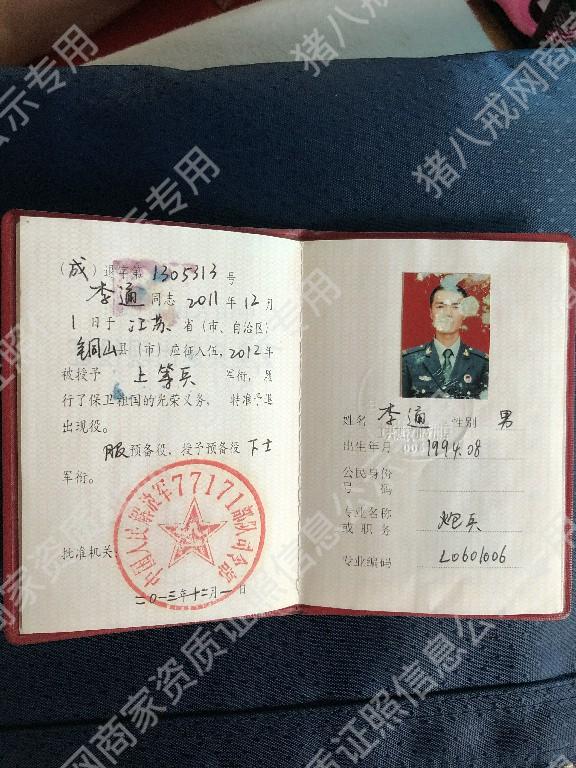 (成)退字第1305313号
李通同志2011年12月
1日于江苏省(市、自治区)
铜山县(市)应征入伍,2012年
被授予上等兵军衔,履
行了保卫祖国的光荣义务,特准予退
出现役。
服预备役,授予预备役下士
军衔。
中国人民解放军77171部队司令部
批准机关:
二〇一三年十二月一日
姓名 李通 性别 男
出生年月 1994.08
公民身份
号码
专业名称
或职务 炮兵
专业编码 L0601006
猪八戒网商家资质证照信息公示专用